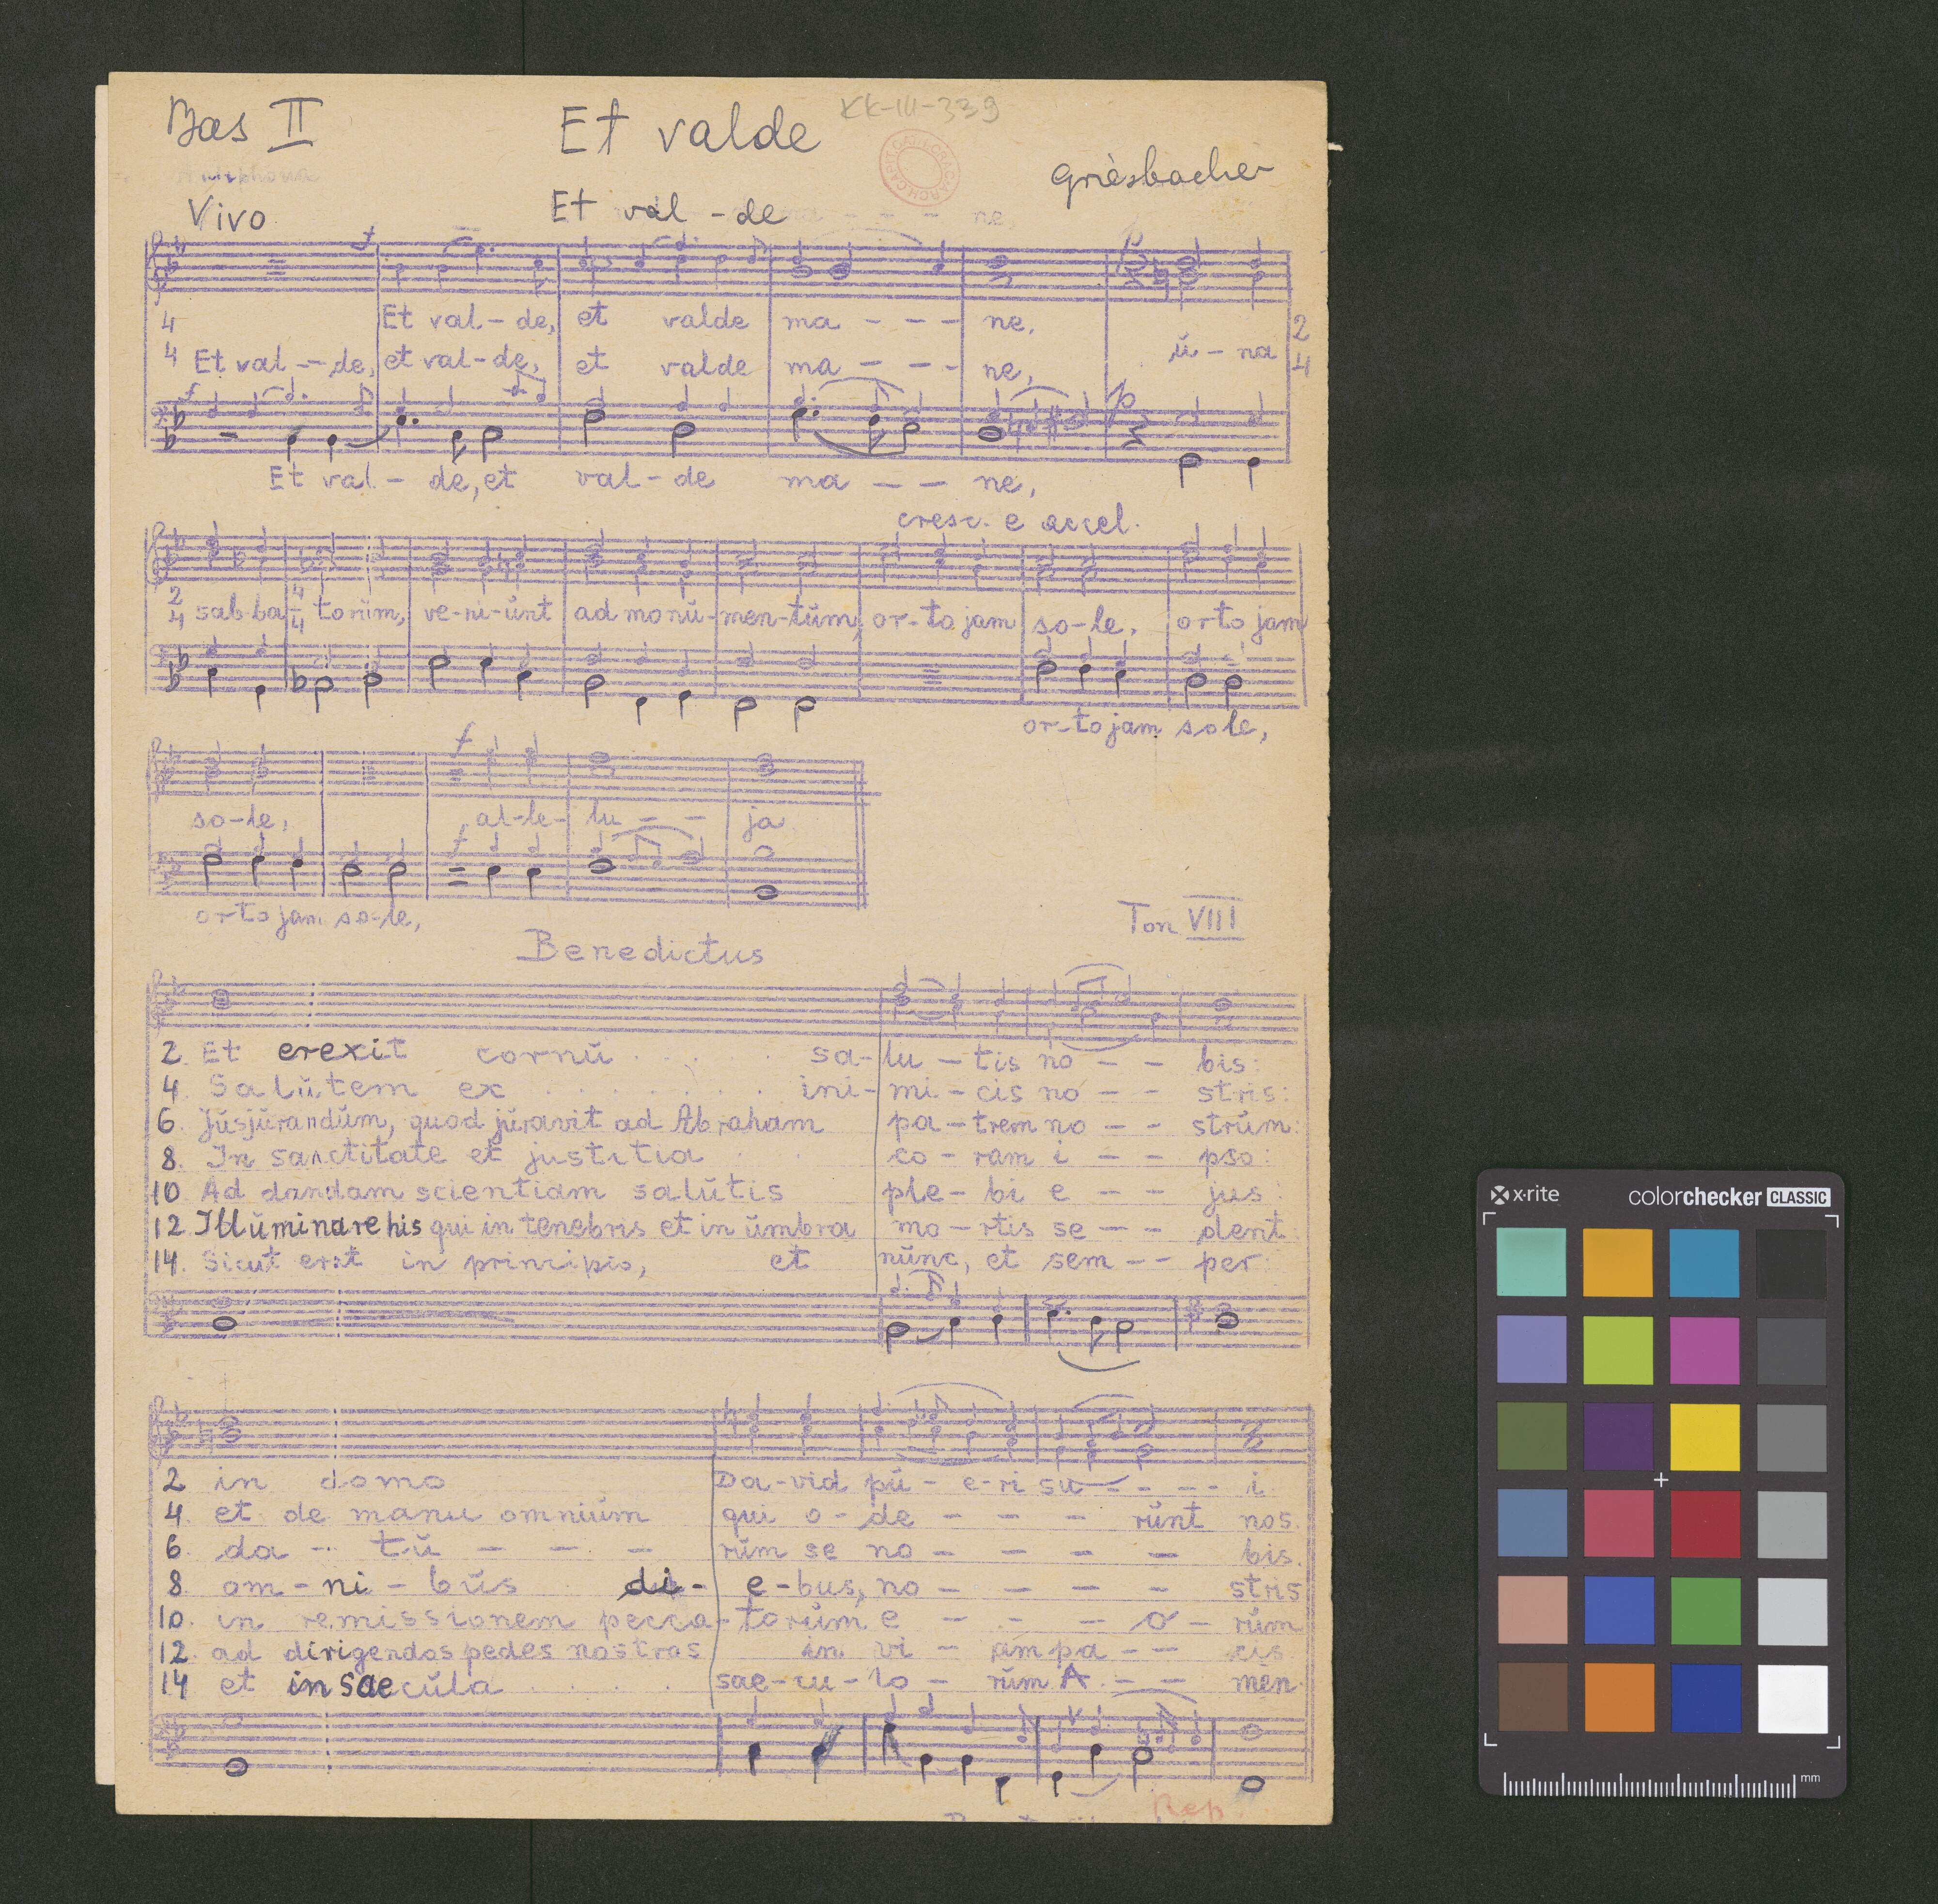 Bas II
Et valde
KK-III-339
Griesbacher
Vivo
Et val - de
ne,
Et val - de, et valde ma - - - ne,
Et val - - de, et val - de, et valde ma - - - ne, ŭ - na
Et val - de, et val - de ma - - ne,
cresc. e accel.
sab - ba - torŭm, ve - ni - ŭnt ad monŭ - men - tŭm, or - to jam so - le, orto jam
or - to jam sole,
so - le, al - le - lu - - ja
orto jam so - le,
Ton VIII
Benedictus
2. Et erexit cornŭ . . . sa - lu - tis no - - bis:
4. Salŭtem ex . . . . . . . ini - mi - cis no - - stris:
6. jŭsjŭrandŭm, quod jŭravit ad Abraham pa - trem no - - strŭm:
8. In sanctitate et justitia co - ram i - - pso:
10. Ad dandam scientiam salŭtis ple - bi e - - jus:
12. Illŭminare his qui in tenebris et in ŭmbra mo - rtis se - - dent
14. Sicut erat in principio, et nŭnc, et sem - - per:
2 in domo Da - vid pŭ - e - ri su - - - - i
4. et de manu omniŭm qui o - de - - - rŭnt nos.
6. da - tŭ - - - rŭm se no - - - - bis.
8 om - ni - bŭs di - e - bus, no - - - - stris
10. in remissionem pecca - torŭm e - - - o - rŭm
12. ad dirigendos pedes nostros in vi - am pa - - cis
14 et in saecŭla . . . . sae - cu - lo - rŭm A - - men
Rep.
x·rite
colorchecker CLASSIC
mm